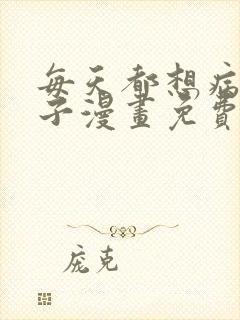 每天都想病
子漫畫免費
庞克